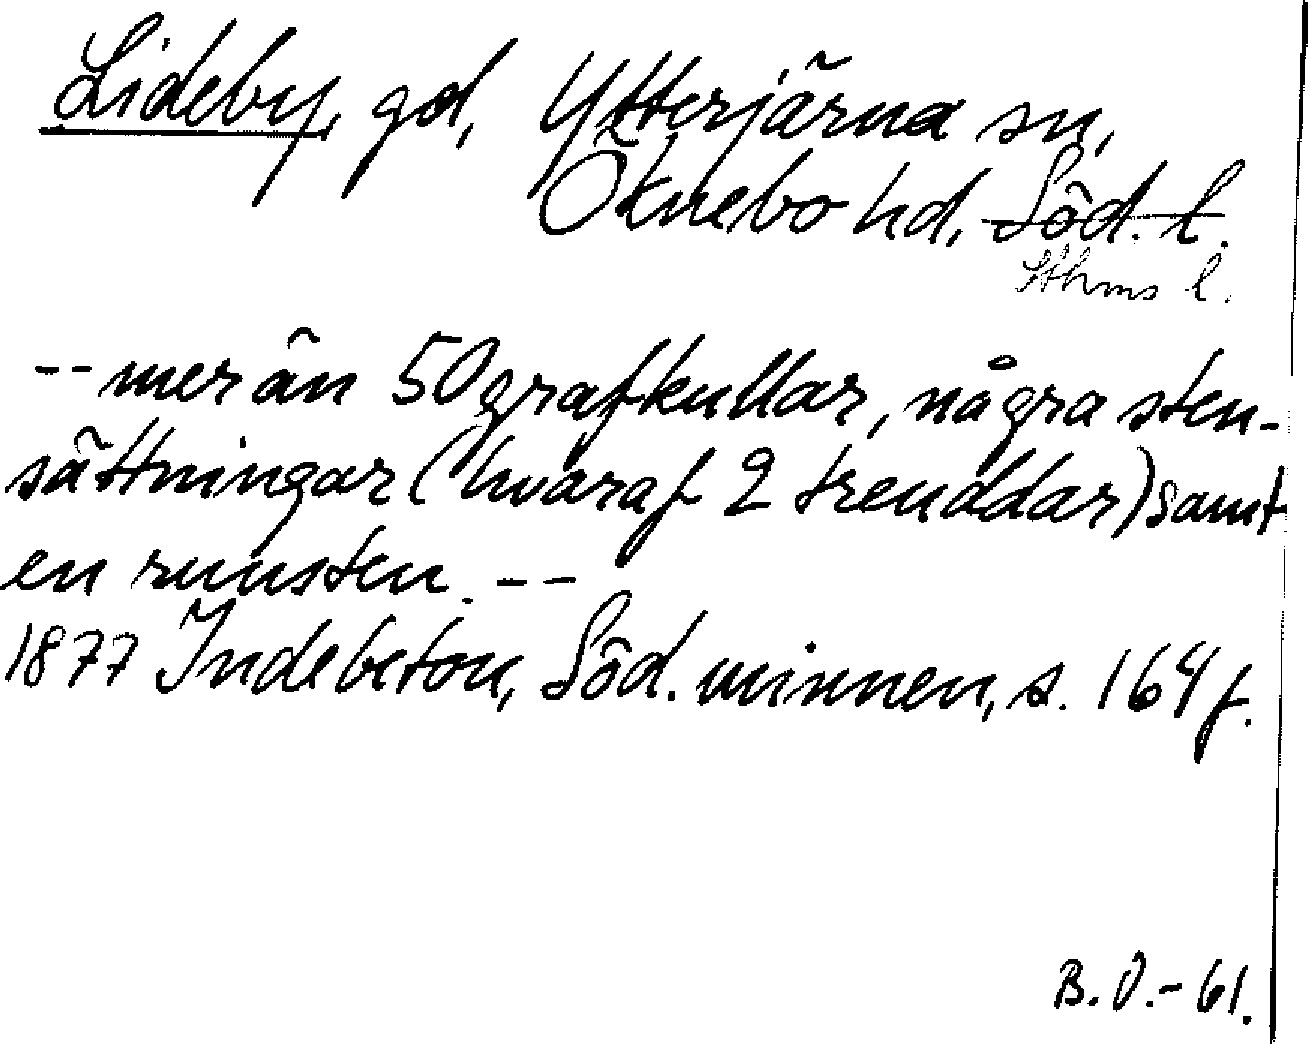 Lideby, gd, Ytterjärna sn,
Öknebo hd, Söd. l.
Sthms l.
-- mer än 50 grafkullar, några sten-
sättningar (hvaraf 2 treuddar) samt
en runsten. --
1877 Indebetou, Söd. minnen, s. 164 f.
B. O. - 61.